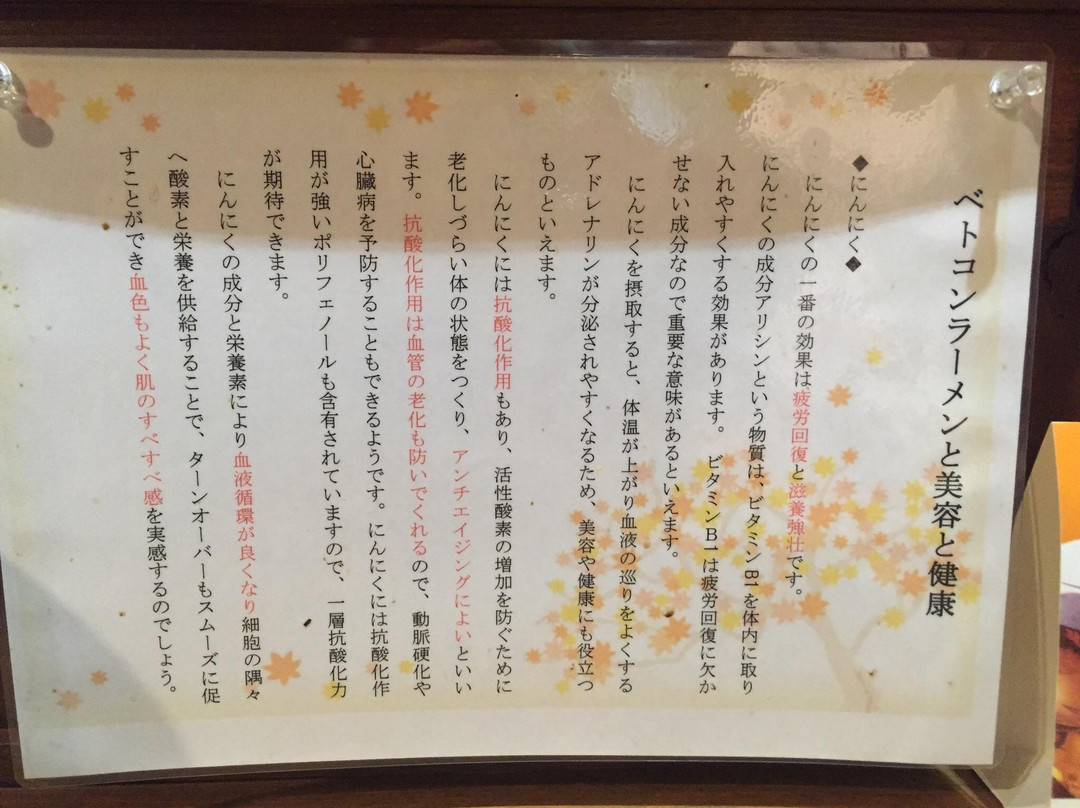 ベトコンラーメンと美容と健康
◆にんにく◆
にんにくの一番の効果は疲労回復と滋養強壮です。
にんにくの成分アリシンという物質は、ビタミンB1を体内に取り
入れやすくする効果があります。ビタミンB1は疲労回復に欠か
せない成分なので重要な意味があるといえます。
にんにくを摂取すると、体温が上がり血液の巡りをよくする
アドレナリンが分泌されやすくなるため、美容や健康にも役立つ
ものといえます。
にんにくには抗酸化作用もあり、活性酸素の増加を防ぐために
老化しづらい体の状態をつくり、アンチエイジングによいといい
ます。抗酸化作用は血管の老化も防いでくれるので、動脈硬化や
心臓病を予防することもできるようです。にんにくには抗酸化作
用が強いポリフェノールも含有されていますので、一層抗酸化力
が期待できます。
にんにくの成分と栄養素により血液循環が良くなり細胞の隅々
へ酸素と栄養を供給することで、ターンオーバーもスムーズに促
すことができ血色もよく肌のすべすべ感を実感するのでしょう。